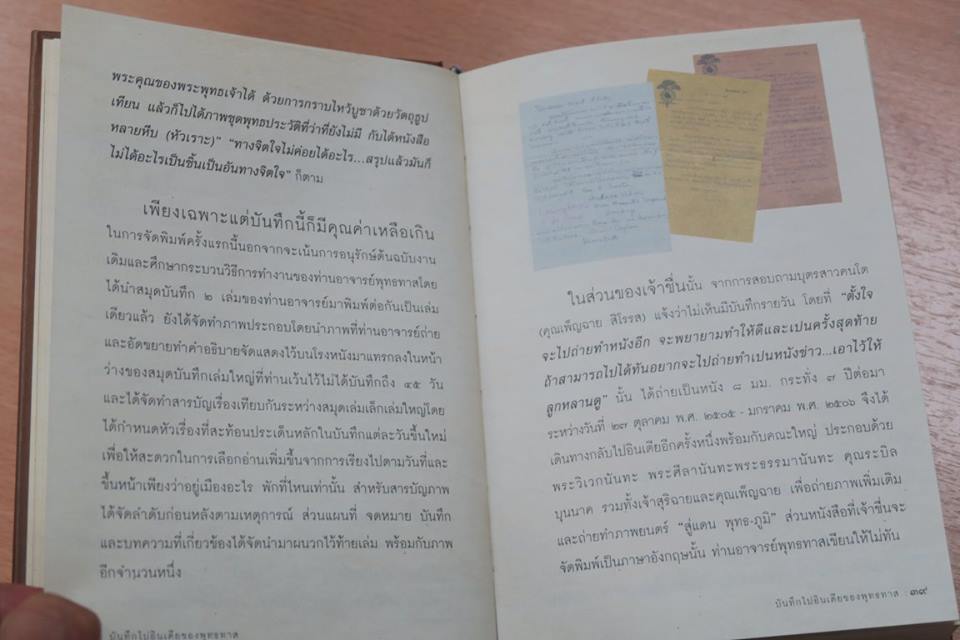 พระคุณของพระพุทธเจ้าได้ ด้วยการกราบไหว้บูชาด้วยวัตถุธูป
เทียน แล้วก็ไปได้ภาพชุดพุทธประวัติที่ว่าที่ยังไม่มี กับได้หนังสือ
หลายหีบ (หัวเราะ)” “ทางจิตใจไม่ค่อยได้อะไร...สรุปแล้วมันก็
ไม่ได้อะไรเป็นชิ้นเป็นอันทางจิตใจ” ก็ตาม
เพียงเฉพาะแต่บันทึกนี้ก็มีคุณค่าเหลือเกิน
ในการจัดพิมพ์ครั้งแรกนี้นอกจากจะเน้นการอนุรักษ์ต้นฉบับงาน
เดิมและศึกษากระบวนวิธีการทำงานของท่านอาจารย์พุทธทาสโดย
ได้นำสมุดบันทึก ๒ เล่มของท่านอาจารย์มาพิมพ์ต่อกันเป็นเล่ม
เดียวแล้ว ยังได้จัดทำภาพประกอบโดยนำภาพที่ท่านอาจารย์ถ่าย
และอัดขยายทำคำอธิบายจัดแสดงไว้บนโรงหนังมาแทรกลงในหน้า
ว่างของสมุดบันทึกเล่มใหญ่ที่ท่านเว้นไว้ไม่ได้บันทึกถึง ๔๕ วัน
และได้จัดทำสารบัญเรื่องเทียบกันระหว่างสมุดเล่มเล็กเล่มใหญ่โดย
ได้กำหนดหัวเรื่องที่สะท้อนประเด็นหลักในบันทึกแต่ละวันขึ้นใหม่
เพื่อให้สะดวกในการเลือกอ่านเพิ่มขึ้นจากการเรียงไปตามวันที่และ
ขึ้นหน้าเพียงว่าอยู่เมืองอะไร พักที่ไหนเท่านั้น สำหรับสารบัญภาพ
ได้จัดลำดับก่อนหลังตามเหตุการณ์ ส่วนแผนที่ จดหมาย บันทึก
และบทความที่เกี่ยวข้องได้จัดนำมาผนวกไว้ท้ายเล่ม พร้อมกับภาพ
อีกจำนวนหนึ่ง
บันทึกไปอินเดียของพุทธทาส
ในส่วนของเจ้าชื่นนั้น จากการสอบถามบุตรสาวคนโต
(คุณเพ็ญฉาย สิโรรส) แจ้งว่าไม่เห็นมีบันทึกรายวัน โดยที่ “ตั้งใจ
จะไปถ่ายทำหนังอีก จะพยายามทำให้ดีและเปนครั้งสุดท้าย
ถ้าสามารถไปได้ทันอยากจะไปถ่ายทำเปนหนังข่าว...เอาไว้ให้
ลูกหลานดู” นั้น ได้ถ่ายเป็นหนัง ๘ มม. กระทั่ง ๗ ปีต่อมา
ระหว่างวันที่ ๒๗ ตุลาคม พ.ศ. ๒๕๐๕ - มกราคม พ.ศ. ๒๕๐๖ จึงได้
เดินทางกลับไปอินเดียอีกครั้งหนึ่งพร้อมกับคณะใหญ่ ประกอบด้วย
พระวิเวกนันทะ พระศีลานันทะพระธรรมานันทะ คุณระบิล
บุนนาค รวมทั้งเจ้าสุริฉายและคุณเพ็ญฉาย เพื่อถ่ายภาพเพิ่มเติม
และถ่ายทำภาพยนตร์ “สู่แดน พุทธ-ภูมิ” ส่วนหนังสือที่เจ้าชื่นจะ
จัดพิมพ์เป็นภาษาอังกฤษนั้น ท่านอาจารย์พุทธทาสเขียนให้ไม่ทัน
บันทึกไปอินเดียของพุทธทาส : ๓๙